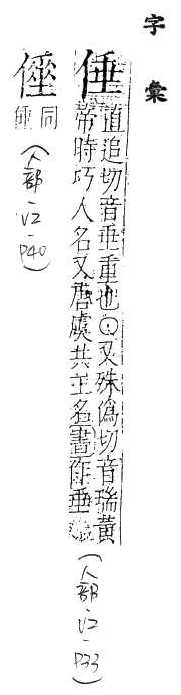 字彙
倕
直追切音垂重也○又殊偽切音瑞黃
帝時巧人名又唐虞共工名書作垂
(人部-V2-P33)
同
倕
(人部-V2-P40)